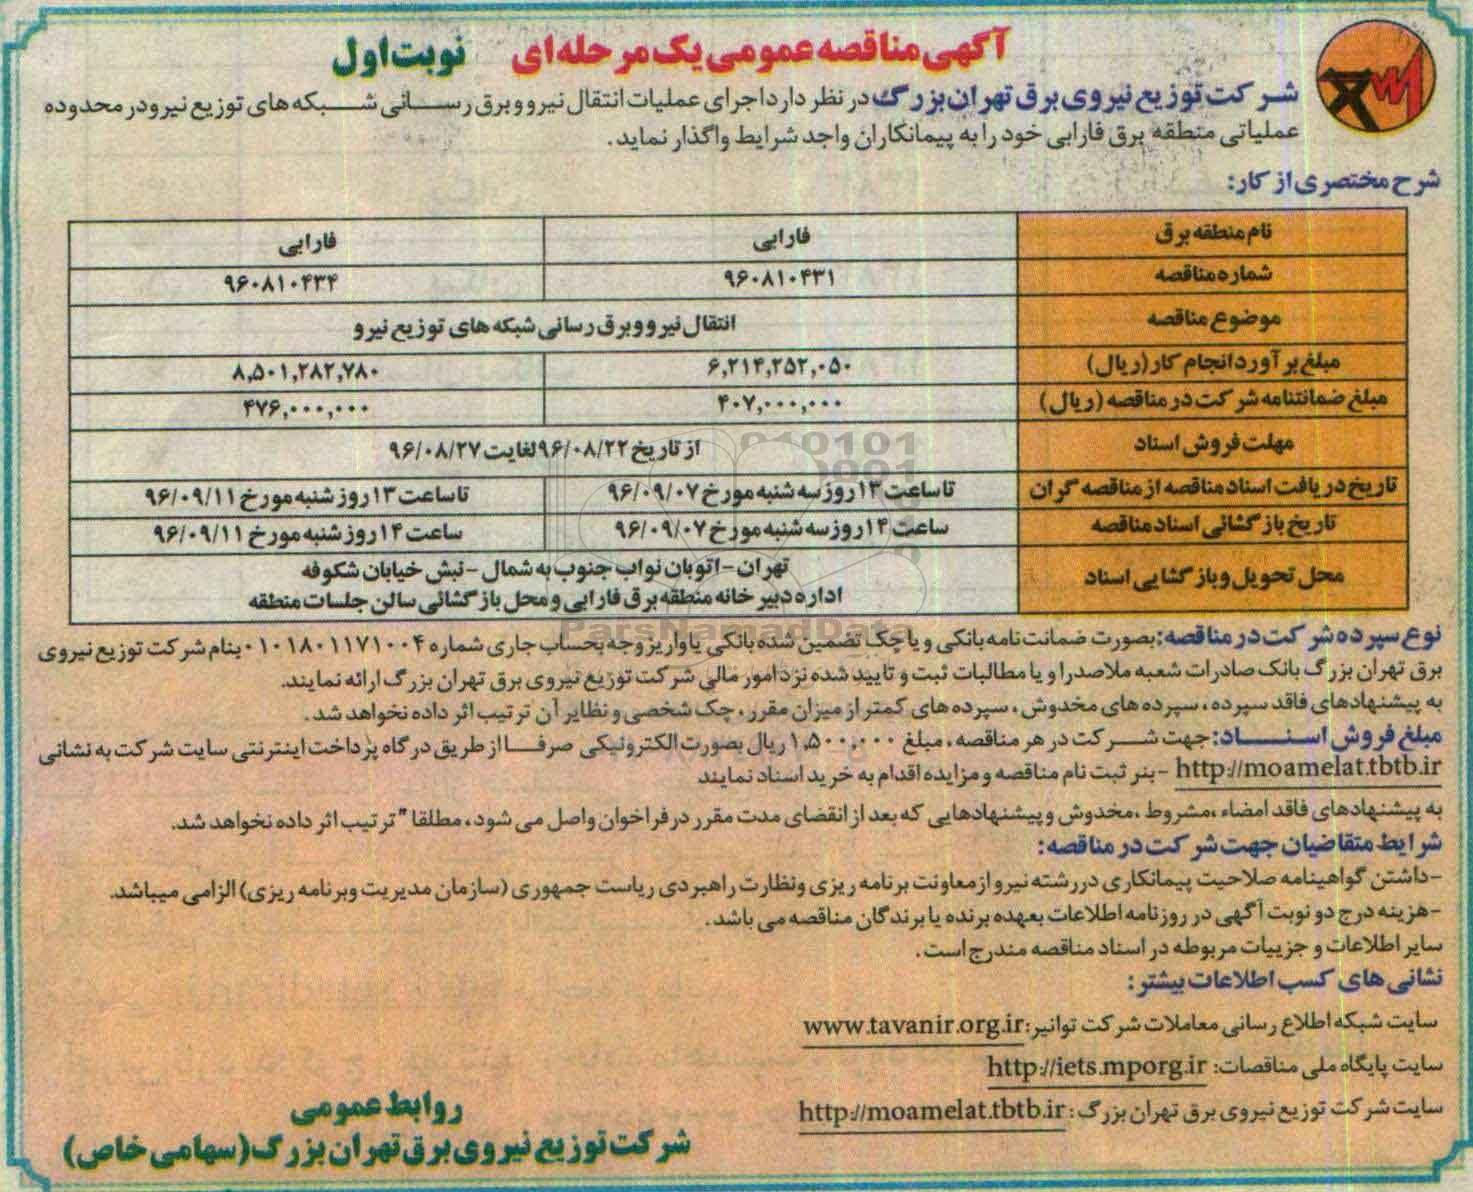 آگهی مناقصه عمومی یک مرحله ای نوبت اول
شرکت توزیع نیروی برق تهران بزرگ در نظر دارد اجرای عملیات انتقال نیرو و برق رسانی شبکه های توزیع نیرو در محدوده
عملیاتی منطقه برق فارابی خود را به پیمانکاران واجد شرایط واگذار نماید.
شرح مختصری از کار:
نام منطقه برق فارابی فارابی
شماره مناقصه ۹۶۰۸۱۰۴۳۱ ۹۶۰۸۱۰۴۳۴
موضوع مناقصه انتقال نیرو و برق رسانی شبکه های توزیع نیرو
مبلغ برآورد انجام کار (ریال) ۶,۲۱۴,۲۵۲,۰۵۰ ۸,۵۰۱,۲۸۲,۷۸۰
مبلغ ضمانتنامه شرکت در مناقصه (ریال) ۴۰۷,۰۰۰,۰۰۰ ۴۷۶,۰۰۰,۰۰۰
مهلت فروش اسناد از تاریخ ۹۶/۰۸/۲۲ لغایت ۹۶/۰۸/۲۷
تاریخ دریافت اسناد مناقصه از مناقصه گران تا ساعت ۱۳ روز سه شنبه مورخ ۹۶/۰۹/۰۷ تا ساعت ۱۳ روز شنبه مورخ ۹۶/۰۹/۱۱
تاریخ بازگشائی اسناد مناقصه ساعت ۱۴ روز سه شنبه مورخ ۹۶/۰۹/۰۷ ساعت ۱۴ روز شنبه مورخ ۹۶/۰۹/۱۱
محل تحویل و بازگشایی اسناد تهران - اتوبان نواب جنوب به شمال - نبش خیابان شکوفه
اداره دبیرخانه منطقه برق فارابی و محل بازگشائی سالن جلسات منطقه
ParsNamadData
نوع سپرده شرکت در مناقصه: بصورت ضمانت نامه بانکی و یا چک تضمین شده بانکی یا واریز وجه بحساب جاری شماره ۰۱۰۱۸۰۱۱۷۱۰۰۴ بنام شرکت توزیع نیروی
برق تهران بزرگ بانک صادرات شعبه ملاصدرا و یا مطالبات ثبت و تایید شده نزد امور مالی شرکت توزیع نیروی برق تهران بزرگ ارائه نمایند.
به پیشنهادهای فاقد سپرده، سپرده های مخدوش، سپرده های کمتر از میزان مقرر، چک شخصی و نظایر آن ترتیب اثر داده نخواهد شد.
مبلغ فروش اسناد: جهت شرکت در هر مناقصه، مبلغ ۱,۵۰۰,۰۰۰ ریال بصورت الکترونیکی صرفا از طریق درگاه پرداخت اینترنتی سایت شرکت به نشانی
http://moamelat.tbtb.ir - بنر ثبت نام مناقصه و مزایده اقدام به خرید اسناد نمایند
به پیشنهادهای فاقد امضاء، مشروط، مخدوش و پیشنهادهایی که بعد از انقضای مدت مقرر در فراخوان واصل می شود، مطلقا" ترتیب اثر داده نخواهد شد.
شرایط متقاضیان جهت شرکت در مناقصه:
-داشتن گواهینامه صلاحیت پیمانکاری در رشته نیرو از معاونت برنامه ریزی ونظارت راهبردی ریاست جمهوری (سازمان مدیریت وبرنامه ریزی) الزامی میباشد.
-هزینه درج دو نوبت آگهی در روزنامه اطلاعات بعهده برنده یا برندگان مناقصه می باشد.
سایر اطلاعات و جزییات مربوطه در اسناد مناقصه مندرج است.
نشانی های کسب اطلاعات بیشتر:
سایت شبکه اطلاع رسانی معاملات شرکت توانیر: www.tavanir.org.ir
سایت پایگاه ملی مناقصات: http://iets.mporg.ir
سایت شرکت توزیع نیروی برق تهران بزرگ: http://moamelat.tbtb.ir
روابط عمومی
شرکت توزیع نیروی برق تهران بزرگ (سهامی خاص)